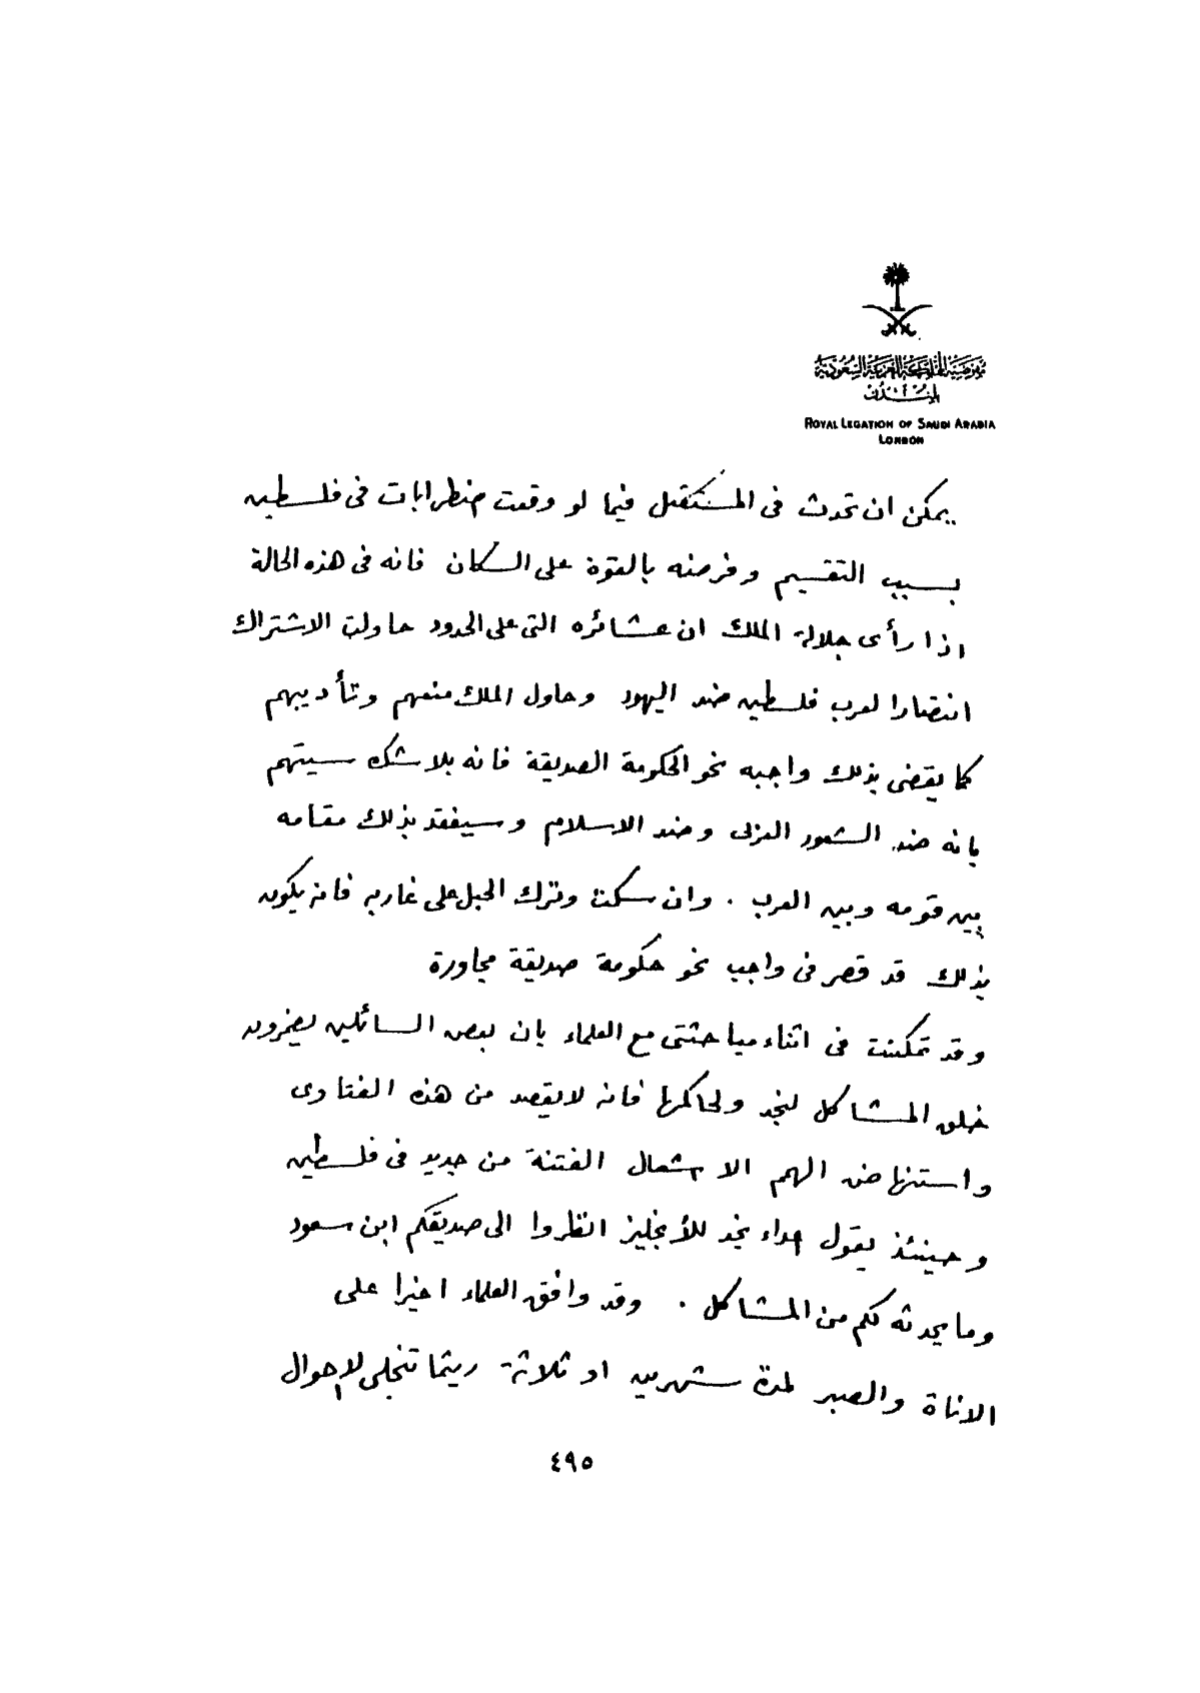 مفوضية المملكة العربية السعودية
بلندن
ROYAL LEGATION OF SAUDI ARABIA
LONDON
يمكن ان تحدث فى المستقبل فيما لو وقعت اضطرابات فى فلسطين
بسبب التقسيم وفرضه بالقوة على السكان فانه فى هذه الحالة
اذا رأى جلالة الملك ان عشائره التى على الحدود حاولت الاشتراك
انتصارا لعرب فلسطين ضد اليهود وحاول الملك منعهم وتأديبهم
كما يقضى بذلك واجبه نحو الحكومة الصديقة فانه بلا شك سيتهم
بانه ضد الشعور العربى وضد الاسلام وسيفقد بذلك مقامه
بين قومه وبين العرب . وان سكت وترك الحبل على غاربه فانه يكون
بذلك قد قصر فى واجب نحو حكومة صديقة مجاورة
وقد تمكنت فى اثناء مباحثتى مع العلماء بان بعض السائلين يضمرون
خلق المشاكل لنجد ولحاكمها فانه لا يقصد من هذه الفتاوى
واستنهاض الهمم الا اشعال الفتنة من جديد فى فلسطين
وحينئذ يقول اعداء نجد للأنجليز انظروا الى صديقكم ابن سعود
وما يحدثه لكم من المشاكل . وقد وافق العلماء اخيرا على
الاناة والصبر لمدة شهرين او ثلاثة ريثما تنجلى الاحوال
٤٩٥